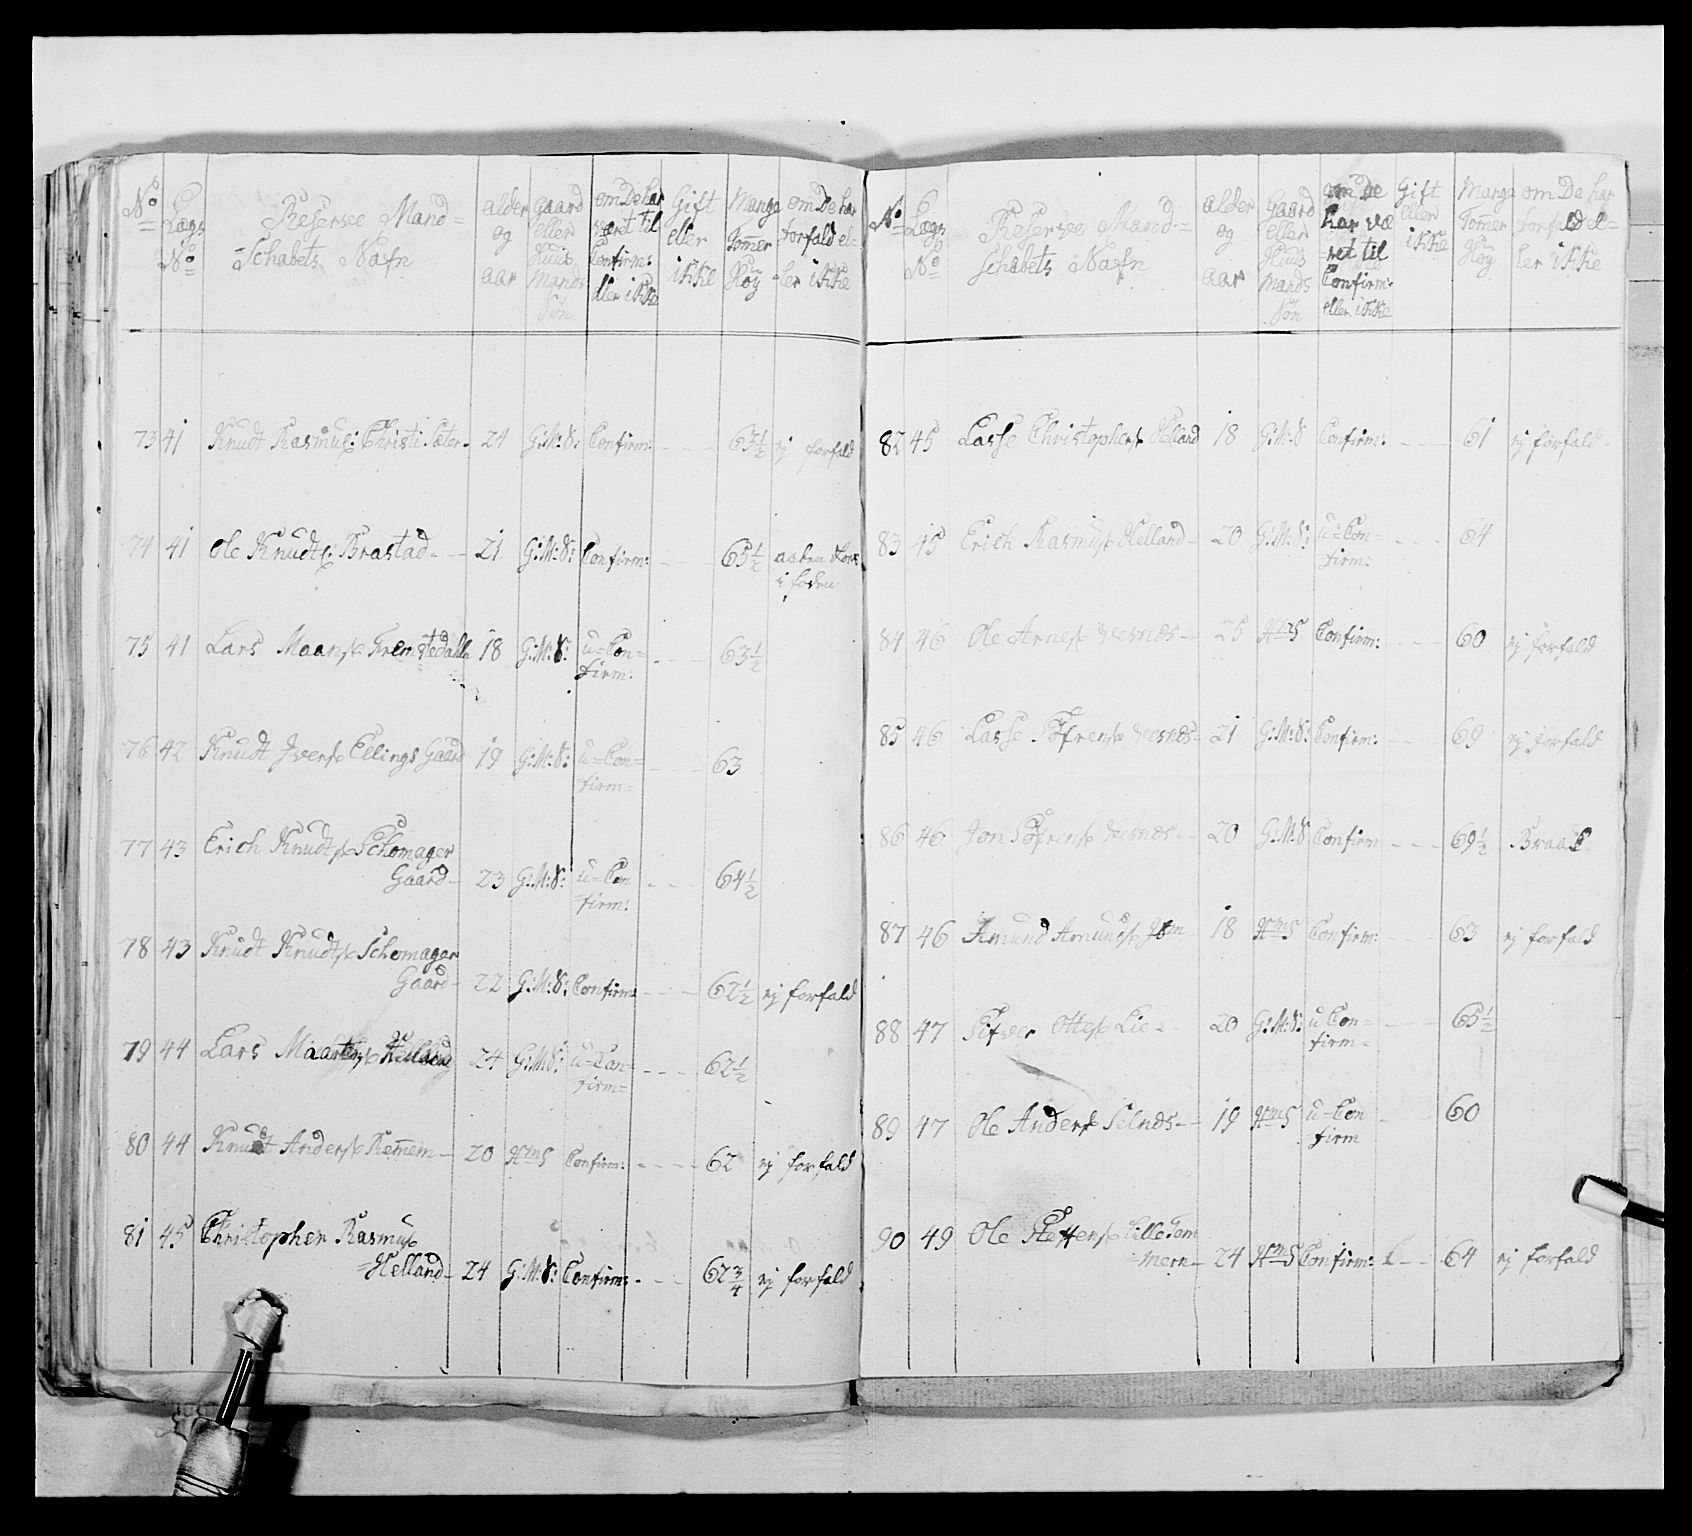 No Lægs No Reservee Mand= Schabets Nafn alder og aar Gaard eller Huus Mands Søn om De har været til Confirm: eller ikke Gift eller ikke Mange Tomer Høy om De har forfald eller ikke
73 41 Knudt Rasmus: Christi Sæter - 24 G:M:S: Confirm: - - - 63½ ej forfald
74 41 Ole Knudts: Brastad - - 21 G:M:S: Confirm: - - - 65½ aaben
i foden
75 41 Lars Maans: Fremstedahl 18 G:M:S: u=Con=
firm: - - - 63½
76 42 Knudt Ivers: Ellings Gaard 19 G:M:S: u=Con=
firm= - - - 63
77 43 Erich Knudts: Schomager
Gaard - 23 G:M:S: u=Con
firm: - - - 64½
78 43 Knudt Knudts: Schomager
Gaard - 22 G:M:S: Confirm: - - - 62½ ej forfald
79 44 Lars Maartens: 24 G:M:S: u=Con=
firm= - - - 62½
80 44 Knudt Anders: Remem - 20 HmS Confirm: - - - - 62 ej forfald
81 45 Christopher Rasmus:
=Helland - 24 G:M:S: Confirm: - - - 62¾ ej forfald
No Lægs No Reservee Mand= schabets Nafn alder og aar Gaard eller Huus Mands Søn om De har været til Confirm: eller ikke Gift eller ikke Mange Tomer Høy om De har forfald el=ler ikke
82 45 Lasse Christophers: Helland 18 G:M:S Confirm: - - - 61 ej forfald -
83 45 Erich Rasmus: Helland - 20 G:M:S: u=Con=
firm: - - - 64
84 46 Ole Arnes: Vesnes - 25 HmS Confirm: - - - 60 ej forfald
85 46 Lasse Sifrens: Vesnes - 21 G:M:S: Confirm: - - - 69 ej forfald
86 46 Jon Sifrens: Vesnes - - 20 G:M:S Confirm - - - 69½ Braak
87 46 Amund Amunds: - 18 HmS Confirm: - - 63 ej forfald
88 47 Sifver Ottes: Lie - - 20 G:M:S: u Con=
firm - - - 65½
89 47 Ole Anders: Selnes - - 19 HmS u=Con
firm - 60
90 49 Ole Stettens: Lille Tom
=mern - 24 HmS Confirm: - - 64 ej forfald